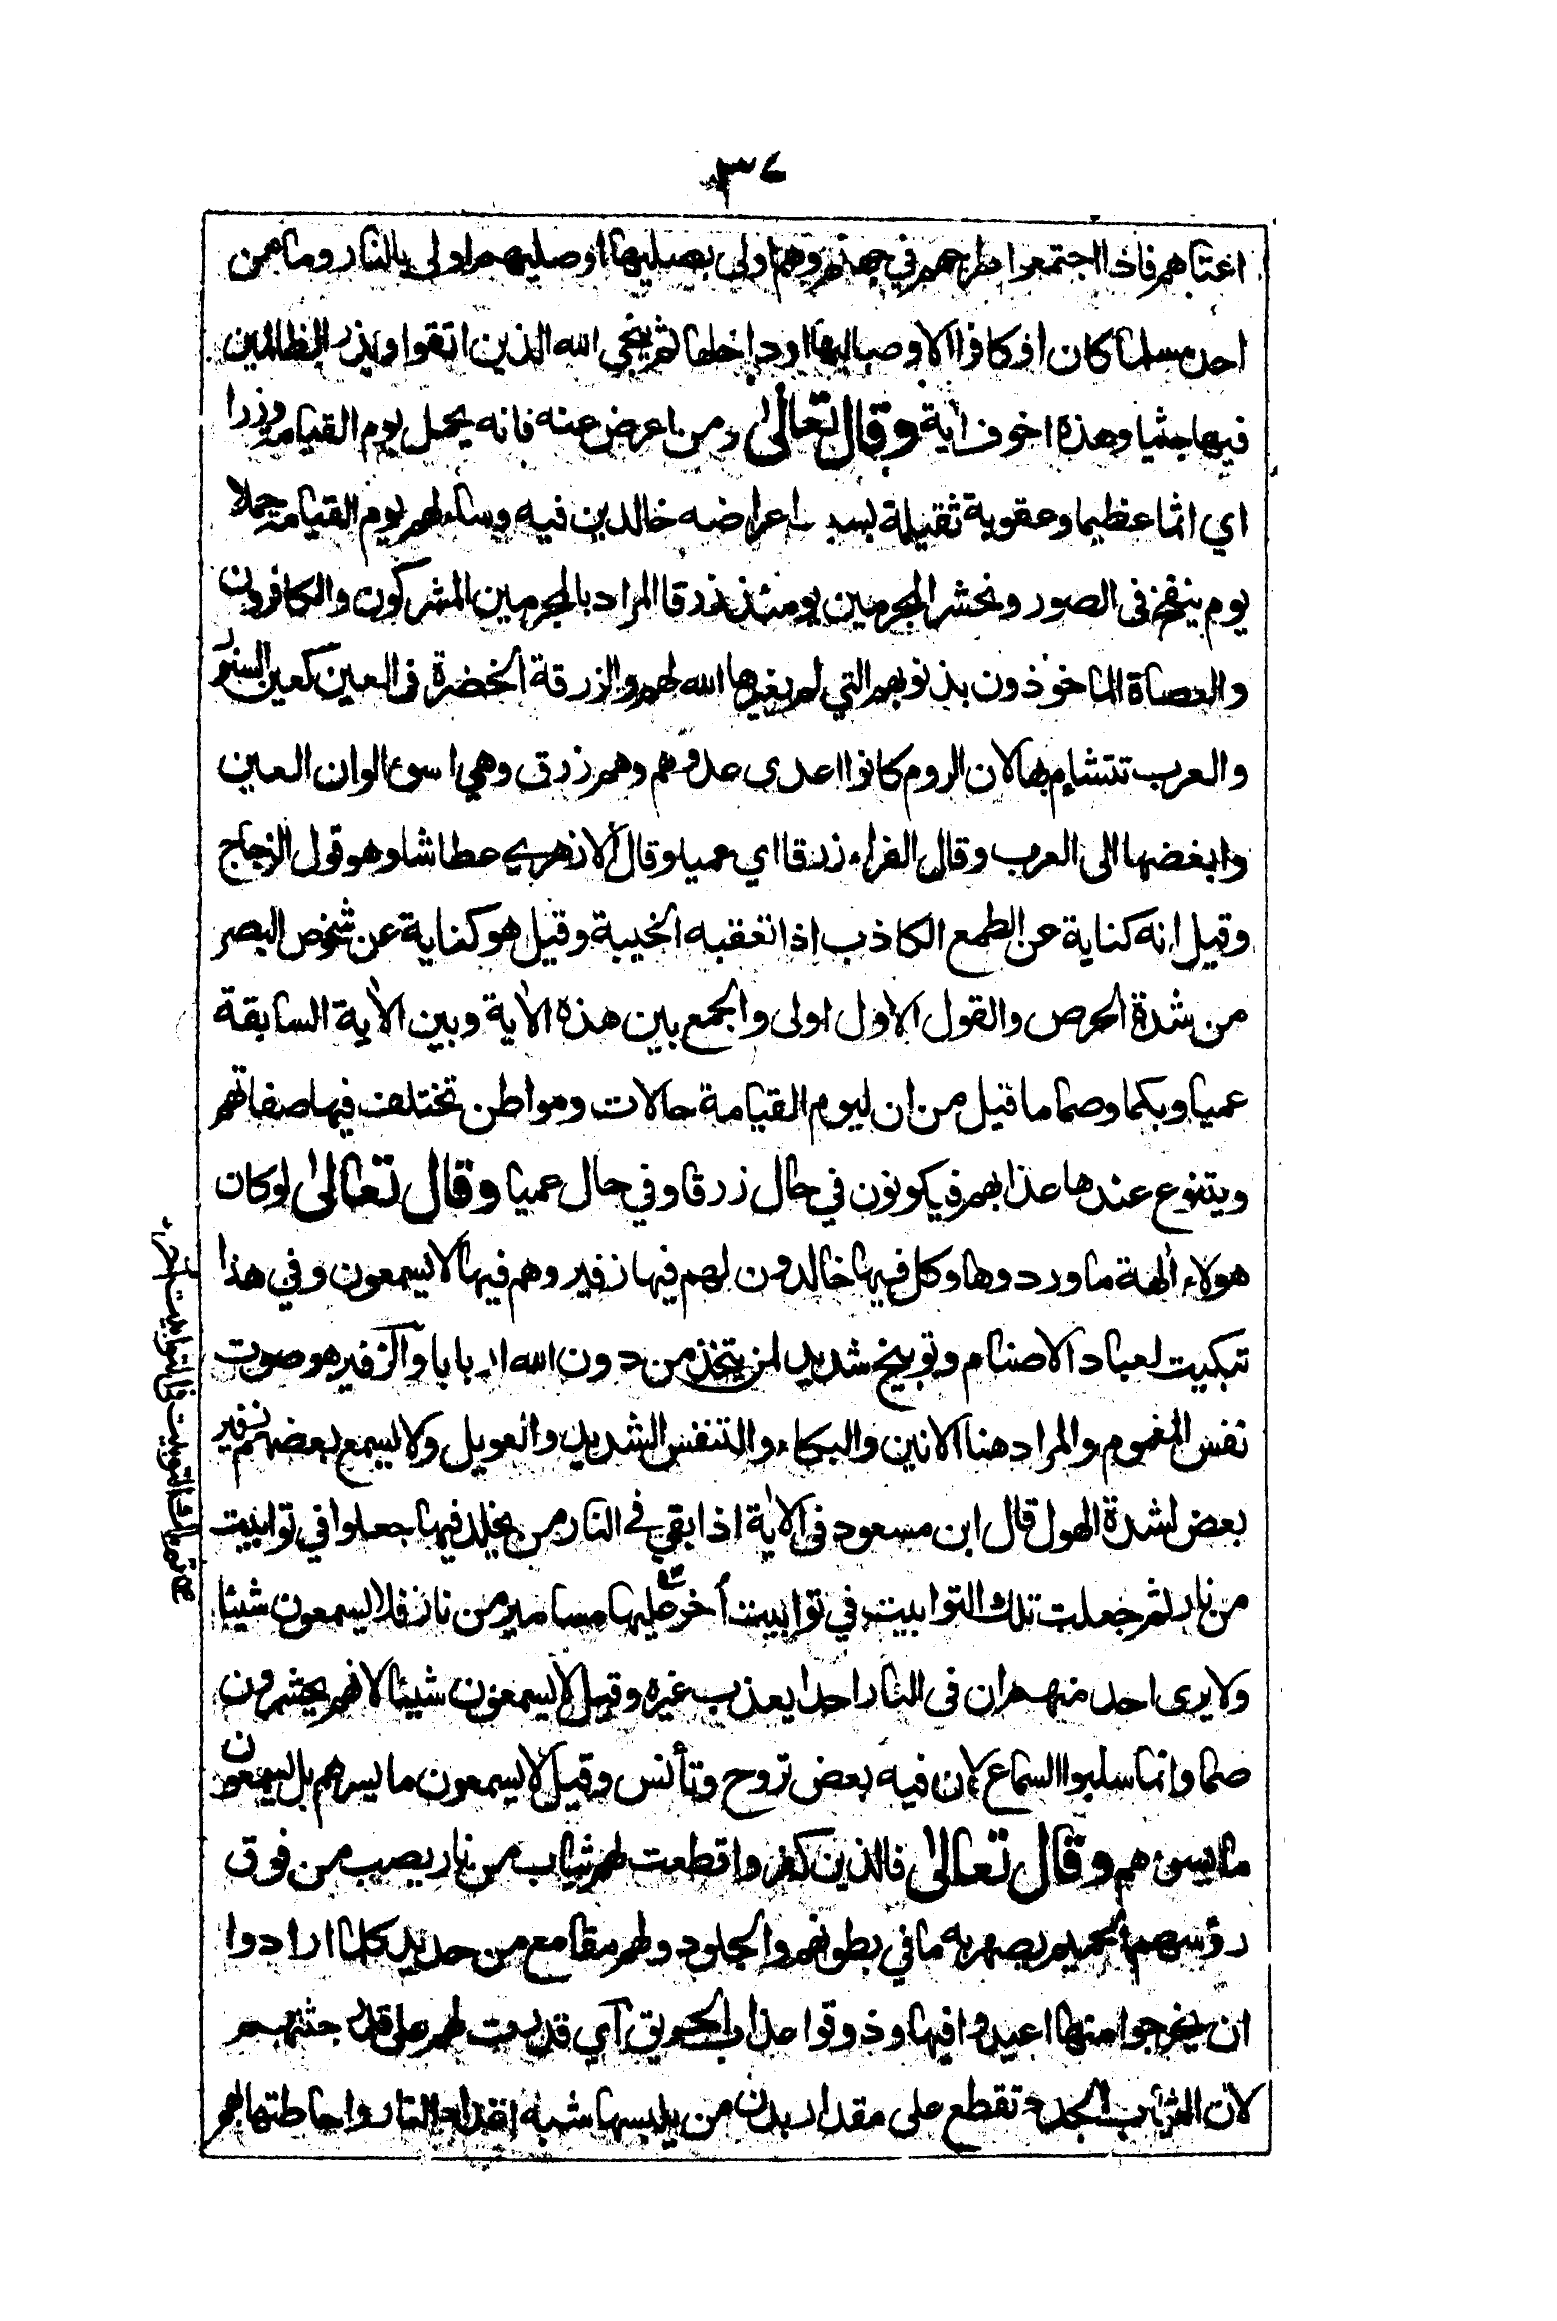 ٣٤
اعتاهم فاذا اجتمعوا طرحهم في جهنم وهم اولى بصليها او صليهم اولى بالنار وما من
احد مسلما كان او كافرا الا وصاليها او داخلها ثم ينجي الله الذين اتقوا ويذر الظالمين
فيها جثيا وهذه اخوف اية وقال تعالى ومن اعرض عنه فانه يحمل يوم القيامة وزرا
اي اثما عظيما وعقوبة ثقيلة بسبب اعراضه خالدين فيه وساء لهم يوم القيامة حملا
يوم ينفخ في الصور ونحشر المجرمين يومئذ زرقا المراد بالمجرمين المشركون والكافرون
والعصاة الماخوذون بذنوبهم التي لم يغفرها الله لهم والزرقة الخضرة في العين كعين السنور
والعرب تتشاءم بها لان الروم كانوا اعدى عدوهم وهم زرق وهي اسوء الوان العين
وابغضها الى العرب وقال الفراء زرقا اي عميا وقال الازهري عطاشا وهو قول الزجاج
وقيل انه كناية عن الطمع الكاذب اذا تعقبه الخيبة وقيل هو كناية عن شخوص البصر
من شدة الحرص والقول الاول اولى والجمع بين هذه الاية وبين الاية السابقة
عميا وبكما وصما ما قيل من ان ليوم القيامة حالات ومواطن تختلف فيها صفاتهم
ويتنوع عندها عذابهم فيكونون في حال زرقا وفي حال عميا وقال تعالى لو كان
هولاء الهة ما وردوها وكل فيها خالدون لهم فيها زفير وهم فيها لا يسمعون وفي هذا
تبكيت لعباد الاصنام وتوبيخ شديد لمن يتخذ من دون الله اربابا والزفير هو صوت
نفس المغموم والمراد هنا الانين والبكاء والتنفس الشديد والعويل ولا يسمع بعضهم زفير
بعض لشدة الهول قال ابن مسعود في الاية اذا بقي في النار من يخلد فيها جعلوا في توابيت
من نار ثم جعلت تلك التوابيت في توابيت أخر عليها مسامير من نار فلا يسمعون شيئا
ولا يرى احد منهم ان في النار احدا يعذب غيره وقيل لا يسمعون شيئا لانهم يحشرون
صما وانما سلبوا السماع لان فيه بعض تروح وتأنس وقيل لا يسمعون ما يسرهم بل يسمعون
ما يسوءهم وقال تعالى فالذين كفروا قطعت لهم ثياب من نار يصب من فوق
رؤسهم الحميم يصهر به ما في بطونهم والجلود ولهم مقامع من حديد كلما ارادوا
ان يخرجوا منها اعيدوا فيها وذوقوا عذاب الحريق اي قدرت لهم على قدر جثتهم
لان الثياب الجدد تقطع على مقدار بدن من يلبسها شبه اعداد النار واحاطتها لهم